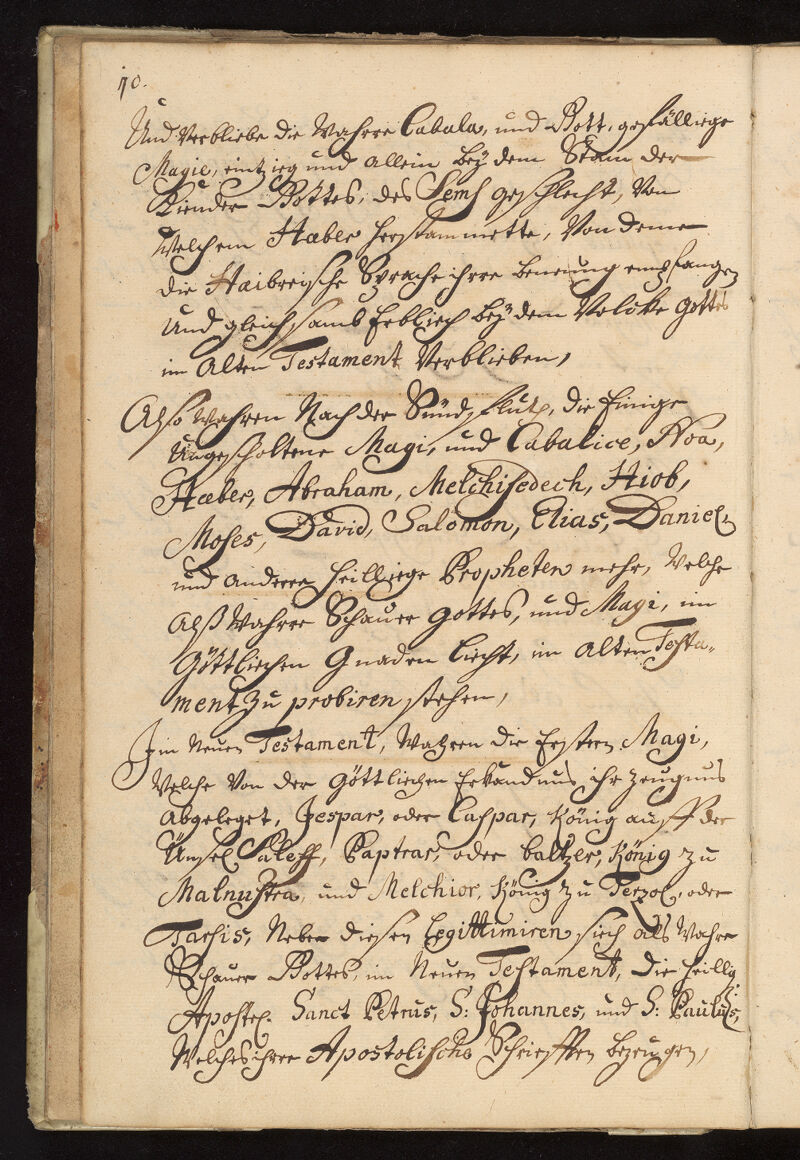 10.
Und Verbliebe die Wahrre Cabala, und Gott, gefälliege
Magie, eintzieg und allein beÿ dem Stam der
Kiender Gottes, des Semß geschlecht, Von
Welchem Hæber herstammette, Von deme
die Haibreische Sprache ihrre benenung empfangen
Und gleich samb Erblich beÿ dem Volcke Gottes
im Alten Testament Verblieben,
Also Wahren Nach der Sündfluth, die Einige
Ungescholtene Magi, und Cabalice, Noa,
Hæber, Abraham, Melchisedech, Hiob,
Moses, David, Salomon, Elias, Daniel,
und anderre heilliege Propheten mehr, Welche
Alß Wahrre Schauer Gottes, und Magi, im
Göttliechen Gnaden liecht, im Alten Testa-
ment zu probiren stehen,
Im Neuen Testament, Wahren die Erstern Magi,
Welche Von der Göttliechen Erkandnus ihr zeugnus
Abgeleget, Jespar, oder Caspar, König auff der
Ünsel Saleff, Paptras, oder baltzer, König zu
Malnustra, und Melchior, König zu Terzol, oder
Tarsis, Neben diesen Legittimiren siech als Wahre
Schauer Gottes, im Neuen Testament, Die heillig:
Apostel. Sanct Petrus, S: Johannes, und S: Paulus,
Welches ihrre Apostolische Schriefften bezeugen,